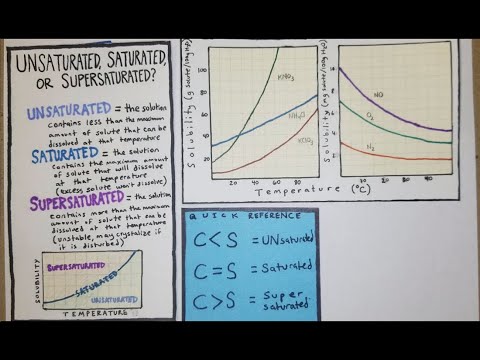 UNSATURATED, SATURATED,
OR SUPERSATURATED?
UNSATURATED = the solution
contains less than the maximum
amount of solute that can be
dissolved at that temperature
SATURATED = the solution
contains the maximum amount
of solute that will dissolve
at that temperature
(excess solute won't dissolve)
SUPERSATURATED = the solution
contains more than the maximum
amount of solute that can be
dissolved at that temperature
(unstable, may crystalize if
it is disturbed)
SOLUBILITY
SUPERSATURATED
SATURATED
UNSATURATED
TEMPERATURE
Solubility (g solute/100g H2O)
100
60
20
KNO3
20 40 60 80
Solubility (mg solute/100g H2O)
NO
O2
N2
10 20 30 40
Temperature (°C)
QUICK REFERENCE
C<S = UNsaturated
C=S = Saturated
C>S = Super
saturated